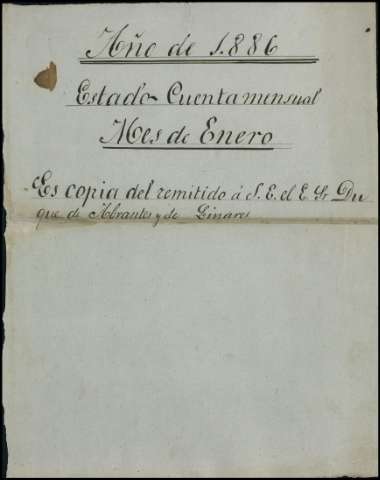 Año de 1.886
Estado-Cuenta mensual
Mes de Enero
Es copia del remitido á S. E. el E. Sr. Du
que de Abrantes y de Linares